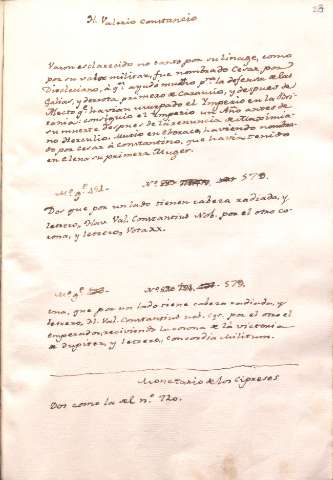 28
Fl. Valerio Constancio
Varon esclarecido no tanto por su linage, como
por su valor militar, fue nombrado Cesar por
Diocleciano, á qn. ayudó mucho pa. la defensa de las
Galias, y derrota primero de Carausio, y despues de
Alecto qe. havian usurpado el Ymperio en la Bri-
tania: consiguio el Ymperio un Año antes de
su muerte despues de la renuncia de Maximia-
no Herculio. Murio en Eborace, haviendo nombra-
do por Cesar á Constantino, que havia tenido
en Elena su primera Muger.
Mo. go. 191. No. 578.
Dos que por un lado tienen cabeza radiada, y
letrero, Flav. Val. Constantius Nob. por el otro co-
rona, y letrero, Vota XX.
Mo. go. No. 579.
una, que por un lado tiene cabeza radiada, y
letrero, Fl. Val. Constantius nob. Cs. por el otro el
emperador, recibiendo la corona de la victoria
de Jupiter, y letrero, Concordia Militum.
Monetario de los Cipreses
Dos como la del no. 720.